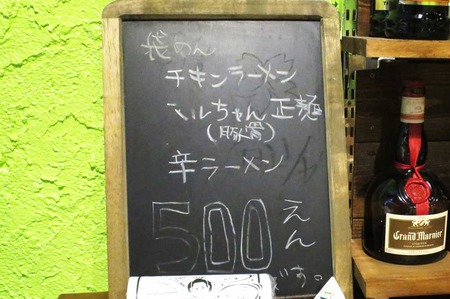 袋めん
チキンラーメン
マルちゃん正麺
(豚骨)
辛ラーメン
500えん
です。
Grand Marnier
LIQUEUR